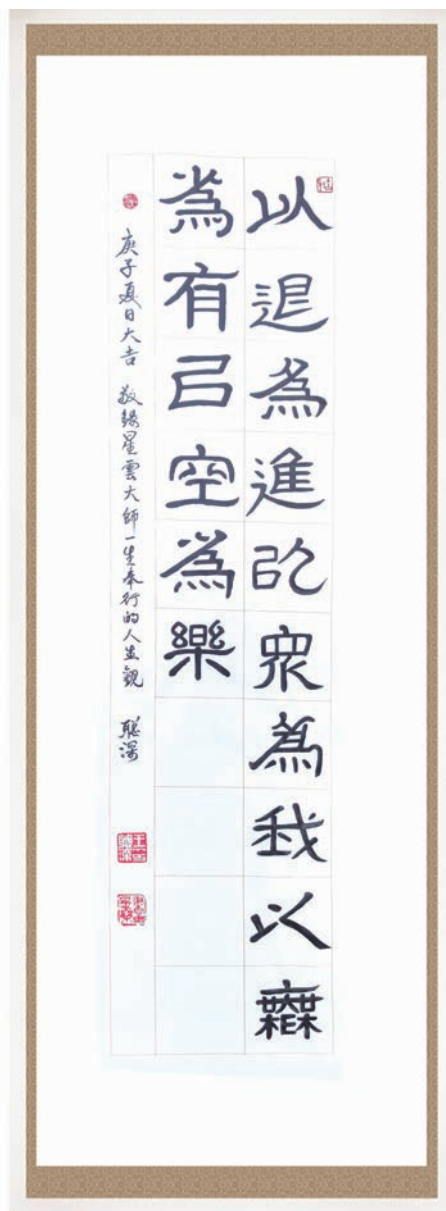 以退為進以眾為我以無
為有以空為樂
庚子夏日大吉 敬錄星雲大師一生奉行的人生觀 聰